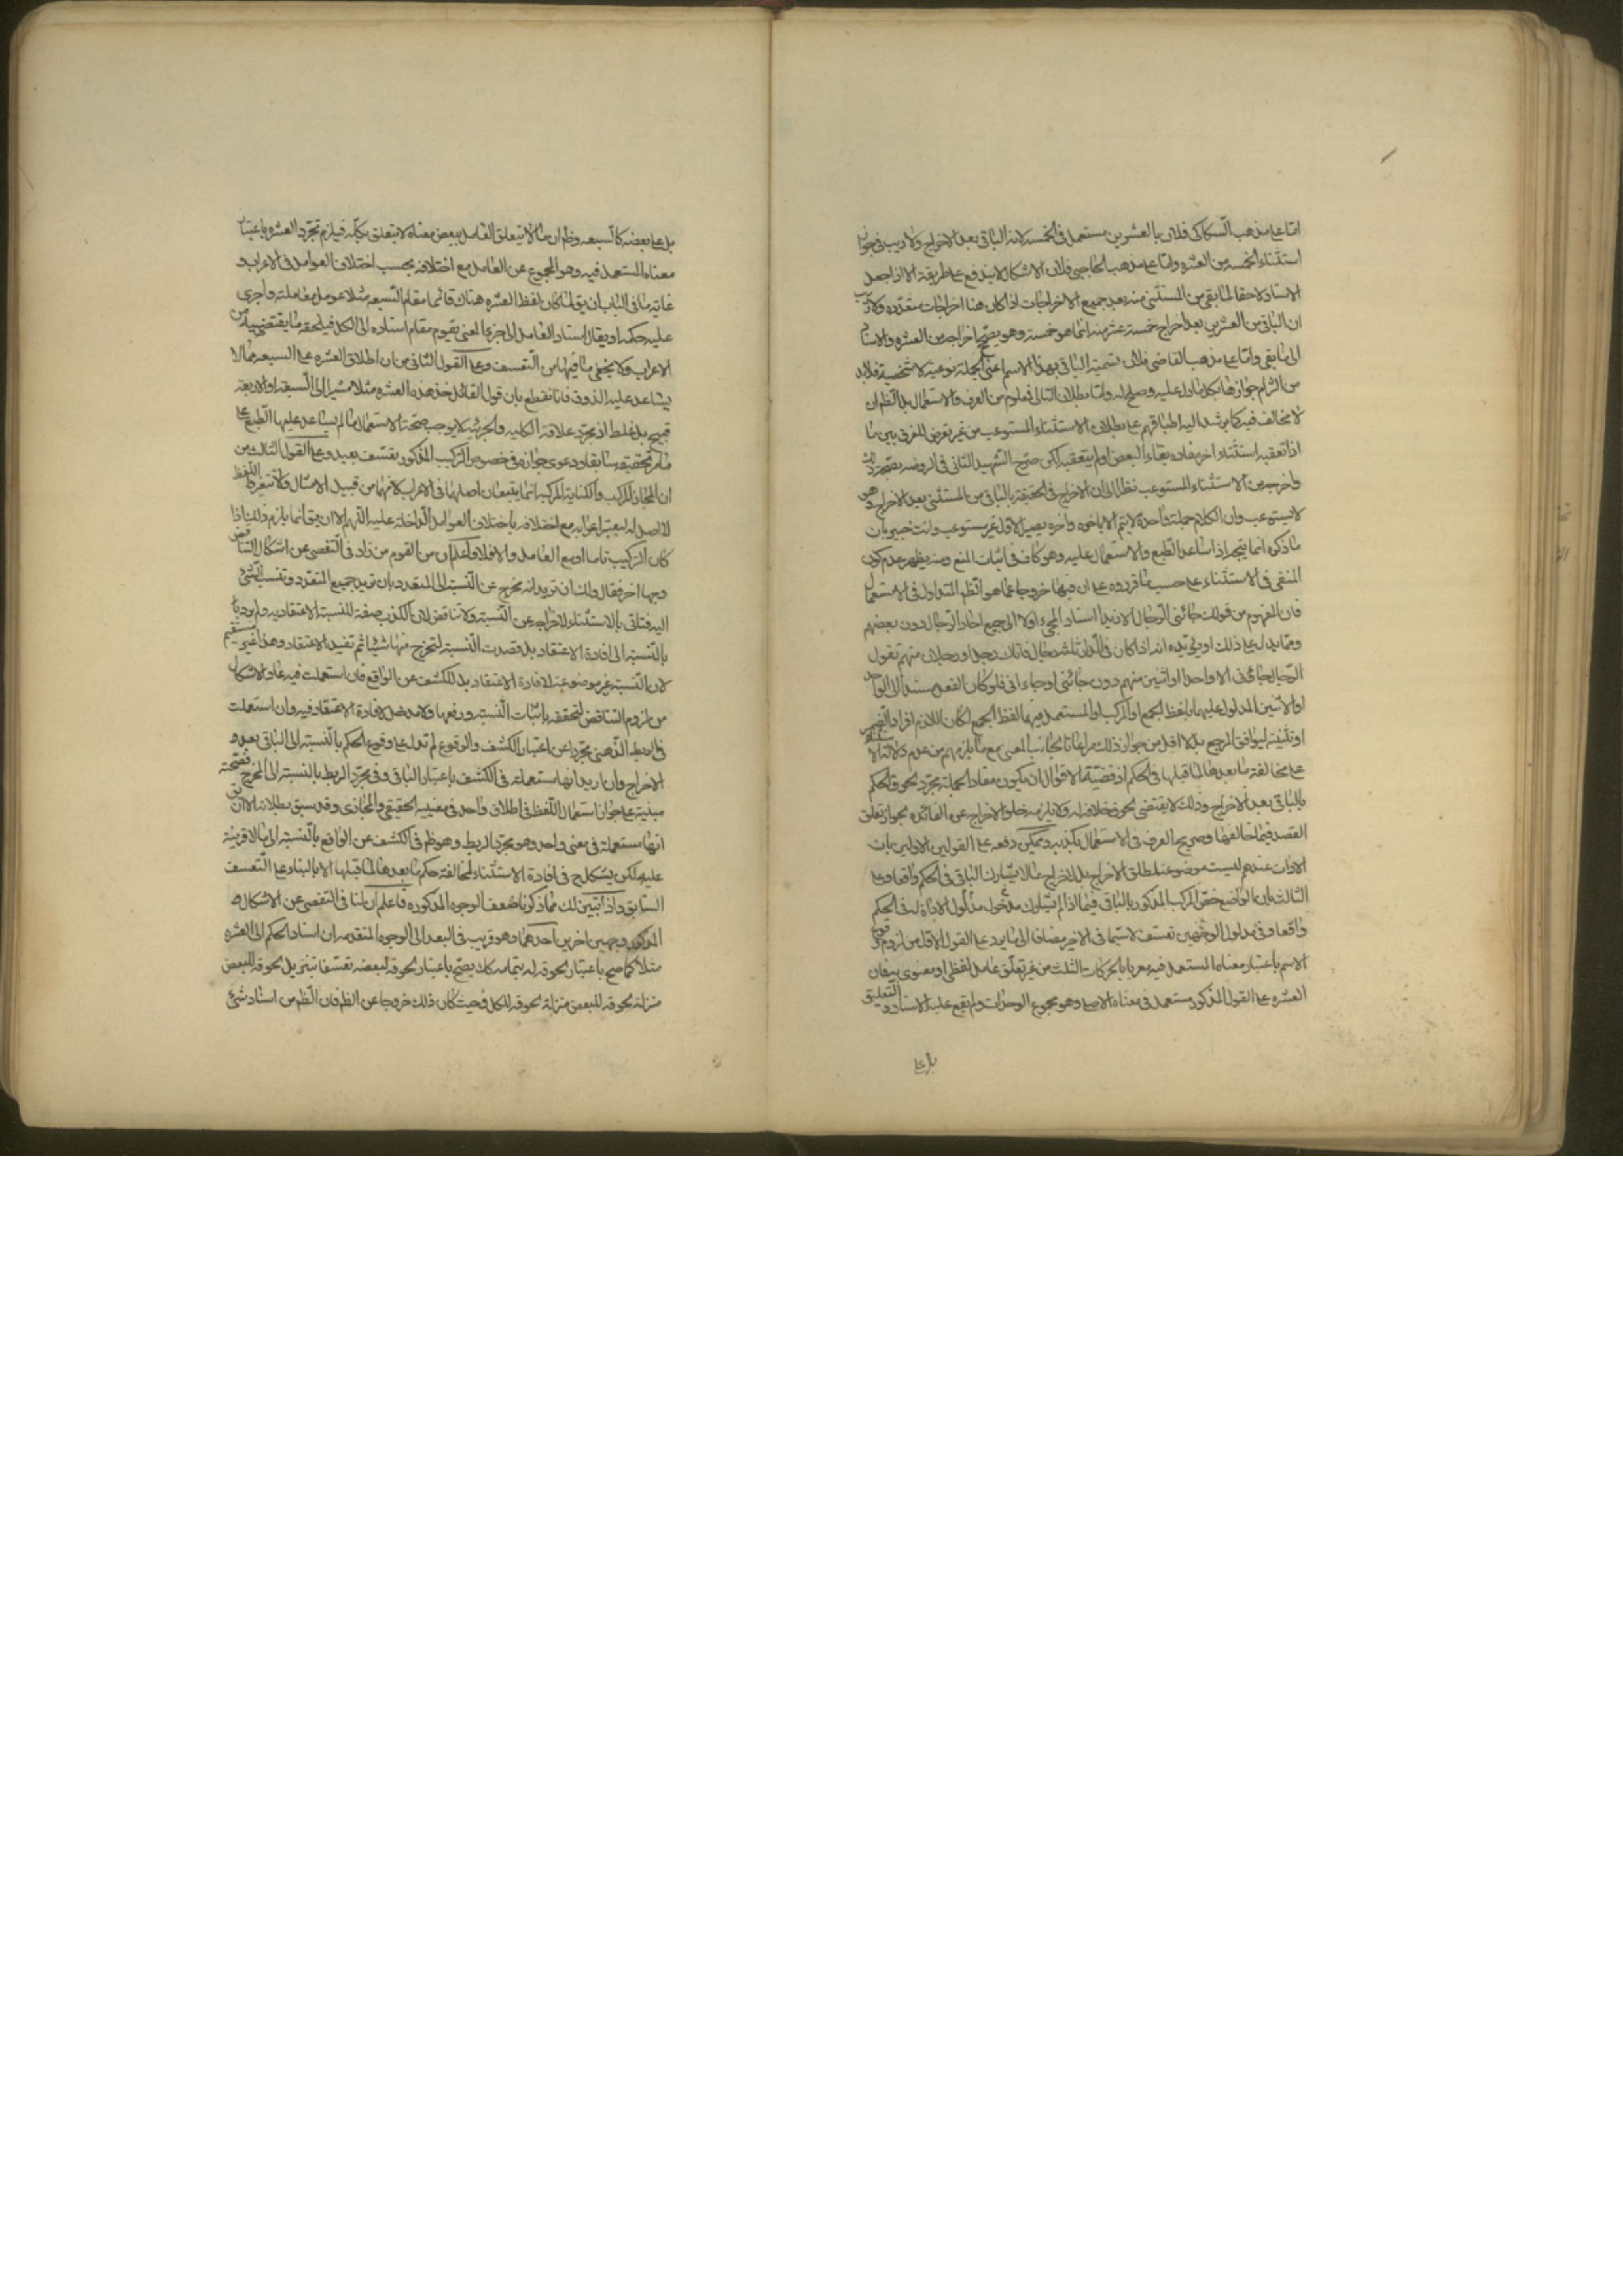 امّا على مذهب السكاكى فلان العشرين مستعمل فى الخمسة لانه الباقى بعد الاخراج ولا ريب فى جواز
استثناء الخمسة من العشرة وامّا على مذهب الحاجبى فلان الاشكال لا يندفع على طريقة الا اذا جعل
الاسناد لاحقا لما بقى من المستثنى منه بعد جميع الاخراجات اذا كان هنا اخراجات متعدده ولا ريب
ان الباقى من العشرين بعد اخراج خمسة عشر منه انما هو خمسة وهو يصحّح اخراجه من العشره والاسناد
الى ما بقى وامّا على مذهب القاضى فلان تسمية الباقى بهذا الاسم اعنى الجملة نوعية لا شخصية فلا بد
من التزام جوازها بكل ما دل عليه وصلح له وامّا بطلان التالى فمعلوم من العرف والاستعمال بل الظم ان
لا مخالف فيه كما يرشد اليه اطباقهم على بطلان الاستثناء المستوعب من غير تعرض للفرق بين ما
اذا تعقبه استثناء اخر مفاده بقاء البعض او لم يتعقبه لكن صرح الشهيد الثانى فى الروضه بصحة ذلك
واخرجه من الاستثناء المستوعب نظرا الى ان الاخراج فى الحقيقة بالباقى من المستثنى بعد الاخراج وهو
لا يستوعب وان الكلام جملة واحدة لا يتم الا باخره واخره يصير الاول غير مستوعب وانت خبير بان
ما ذكره انما يتجه اذا ساعد الطبع والاستعمال عليه وهو كاف فى اثبات المنع ومنه يظهر عدم كون
المنفى فى الاستثناء على حسب ما قرروه على ان فيها خروجا عما هو الظم المتداول فى الاستعمال
فان المفهوم من قولك جائنى الرجال الا زيدا اسناد المجىء اولا الى جميع احاد الرجال دون بعضهم
ومما يدل على ذلك او يؤيّده انه اذا كان فى الدار ثلثه رجال فاتاك رجل او رجلان منهم تقول
الرجال جائنى الا واحدا او اثنين منهم دون جائنى او جاءانى فلو كان الفعل مسندا الى الواحد
او الاثنين المدلول عليهما بلفظ الجمع او المركب او المستعمل فيهما لفظ الجمع لكان اللازم افراد الضمير
او تثنيته ليوافق المرجع بل لا اقل من جواز ذلك مراعاتا لجانب المعنى مع ما يلزمهم من عدم دلالة الاستثناء
على مخالفة ما بعدها لما قبلها فى الحكم اذ قضيّة الاقوال ان يكون مفاد الجملة مجرّد لحوق الحكم
بالباقى بعد الاخراج وذلك لا يقتضى لحوق خلافه له ولا يلزمه خلو الاخراج عن الفائده لجواز تعلق
القصد فيها وصريح العرف فى الاستعمال يكذبه ويمكن دفعه على القولين الاولين بان
الادات عندهم ليست موضوعة لمطلق الاخراج بل لاخراج ما لا يشارك الباقى فى الحكم واقعا وعلى
الثالث بان الواضع خصّ المركب المذكور بالباقى فيما اذا لم يشارك مدخول مدلول الاداة له فى الحكم
واقعا وفى مدلول الوجهين تعسّف لا سيّما فى الاخير مضافا الى ما يرد على القول الاول من لزوم وقوع
الاسم باعتبار معناه المستعمل فيه معربا بالحركات الثلث من غير تعلّق عامل لفظى او معنوى به فان
العشره على القول المذكور مستعمل فى معناه الاصلى وهو مجموع الوحدات ولم يقع عليه الاسناد والتعليق
بل على
بل على بعضه كالسبعه وظم ان ما لا يتعلق العامل ببعض معناه لا يتعلق بكلّه فيلزم تجرّد العشره باعتبار
معناه المستعمل فيه وهو المجموع عن العامل مع اختلافه بحسب اختلاف العوامل فى الاعراب و
غاية ما فى الباب ان يق لما كان لفظ العشره هناك قائما مقام السبعه مثلا عومل معاملته واجرى
عليه حكمه او يقال اسناد العامل الى جزء المعنى يقوم مقام اسناده الى الكل فيلحقه ما يقتضيه من
الاعراب ولا يخفى ما فيهما من التعسف وعلى القول الثانى من ان اطلاق العشره على السبعه مما لا
يساعد عليه الذوق فانا نقطع بان قول القائل خذ هذه العشره مثلا مشيرا الى السبعة او الاربعة
قبيح بل غلط اذ مجرّد علاقة الكلية والجزئية لا يوجب صحّة الاستعمال ما لم يساعد عليها الطبع على
ما مر تحقيقه سابقا ودعوى جوازه فى خصوص التركيب المذكور تعسّف بعيد وعلى القول الثالث من
ان المجاز المركب والكناية المركبة انما يتبعان اصلهما فى الاعراب لانهما من قبيل الامثال ولا تتغير واللفظ
لا اصل له ليعتبر اعرابه مع اختلافه باختلاف العوامل الداخلة عليه اللهم الا ان يق انما يلزم ذلك اذا
كان التركيب تاما او مع العامل والا فلا واعلم ان من القوم من زاد فى التفصى عن اشكال التناقض
وجها اخر فقال ولك ان تريد انه يخرج عن النسبة الى المتعدد بان تريد جميع المتعدد وتنسب الشئ
اليه فتاتى بالاستثناء لاخراجه عن النسبة ولا تناقض لان الكذب صفة للنسبة الاعتقاديه ولم يرد بها
بالنسبة الى افادة الاعتقاد بل قصدت النسبة لتخرج منها شيئا ثم تفيد الاعتقاد وهذا غير مستقيم
لان النسبة غير موضوعة لافادة الاعتقاد بل للكشف عن الواقع فان استعملت فيه عاد الاشكال
من لزوم التناقض لتحققه باثبات النسبة ورفعها ولا مدخل لافادة الاعتقاد فيه وان استعملت
فى الربط الذهنى مجرّدا عن اعتبار الكشف والوقوع لم تدل على وقوع الحكم بالنسبة الى الباقى بعد
الاخراج وان اريد انها مستعملة فى الكشف باعتبار الباقى وفى مجرّد الربط بالنسبة الى المخرج فصحته
مبنية على جواز استعمال اللفظ فى اطلاق واحد فى معنييه الحقيقى والمجازى وقد سبق بطلانه الا ان يق
انها مستعملة فى معنى واحد وهو مجرّد الربط وهو ظم فى الكشف عن الواقع بالنسبة الى ما لا قرينة
عليه لكن يشكل ح فى افادة الاستثناء لمخالفة حكم ما بعدها لما قبلها الا بالبناء على التعسف
السابق واذا تبيّن لك مما ذكرنا ضعف الوجوه المذكوره فاعلم ان لنا فى التفصى عن الاشكال
المذكور وجهين اخرين احدهما وهو قريب فى البعد الى الوجوه المتقدمه ان اسناد الحكم الى العشره
مثلا كما صح باعتبار لحوقه له بتمامه كك يصحّ باعتبار لحوقه لبعضه تعسّفا بتنزيل لحوقه للبعض
منزلة لحوقه للبعض منزلة لحوقه للكل وحيث كان ذلك خروجا عن الظم فان الظم من اسناد شئ